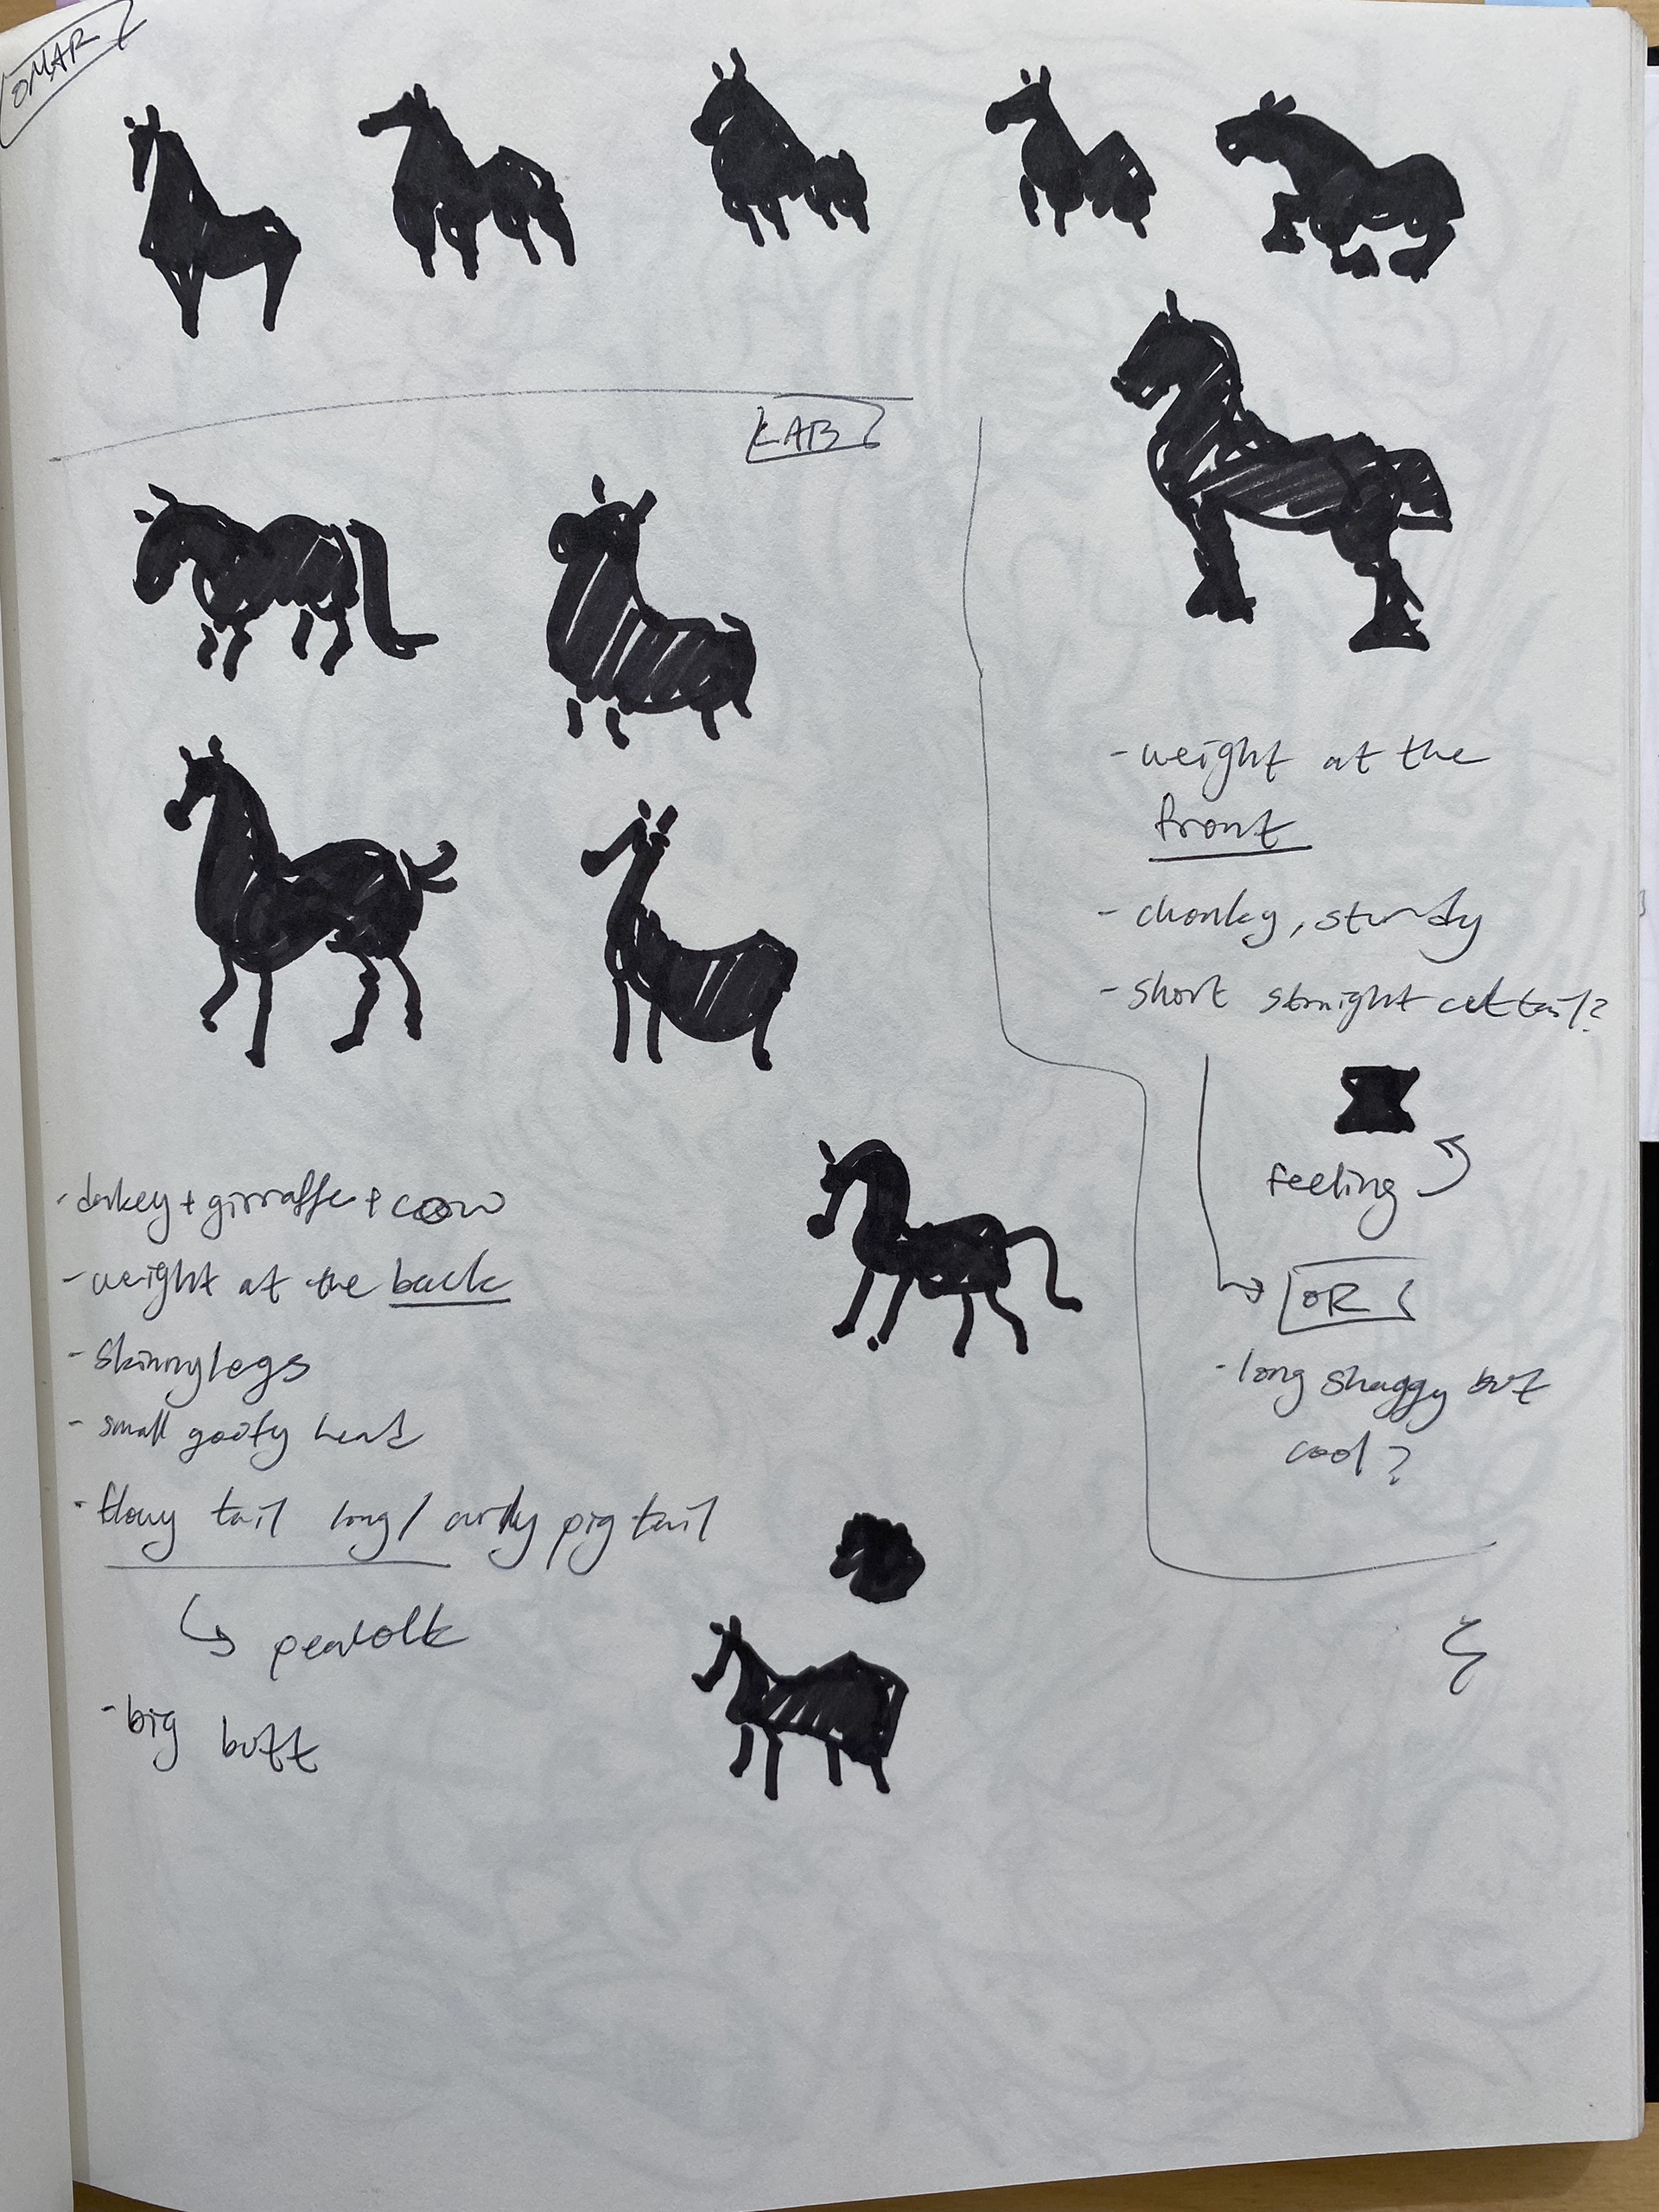 OMAR
LAB
- weight at the
front
- chonky, sturdy
- short straight cut tail?
feeling
OR
- long shaggy but
cool?
- donkey + girraffe + cow
- weight at the back
- skinny legs
- small goofy head
- flowy tail long / curly pig tail
- big butt